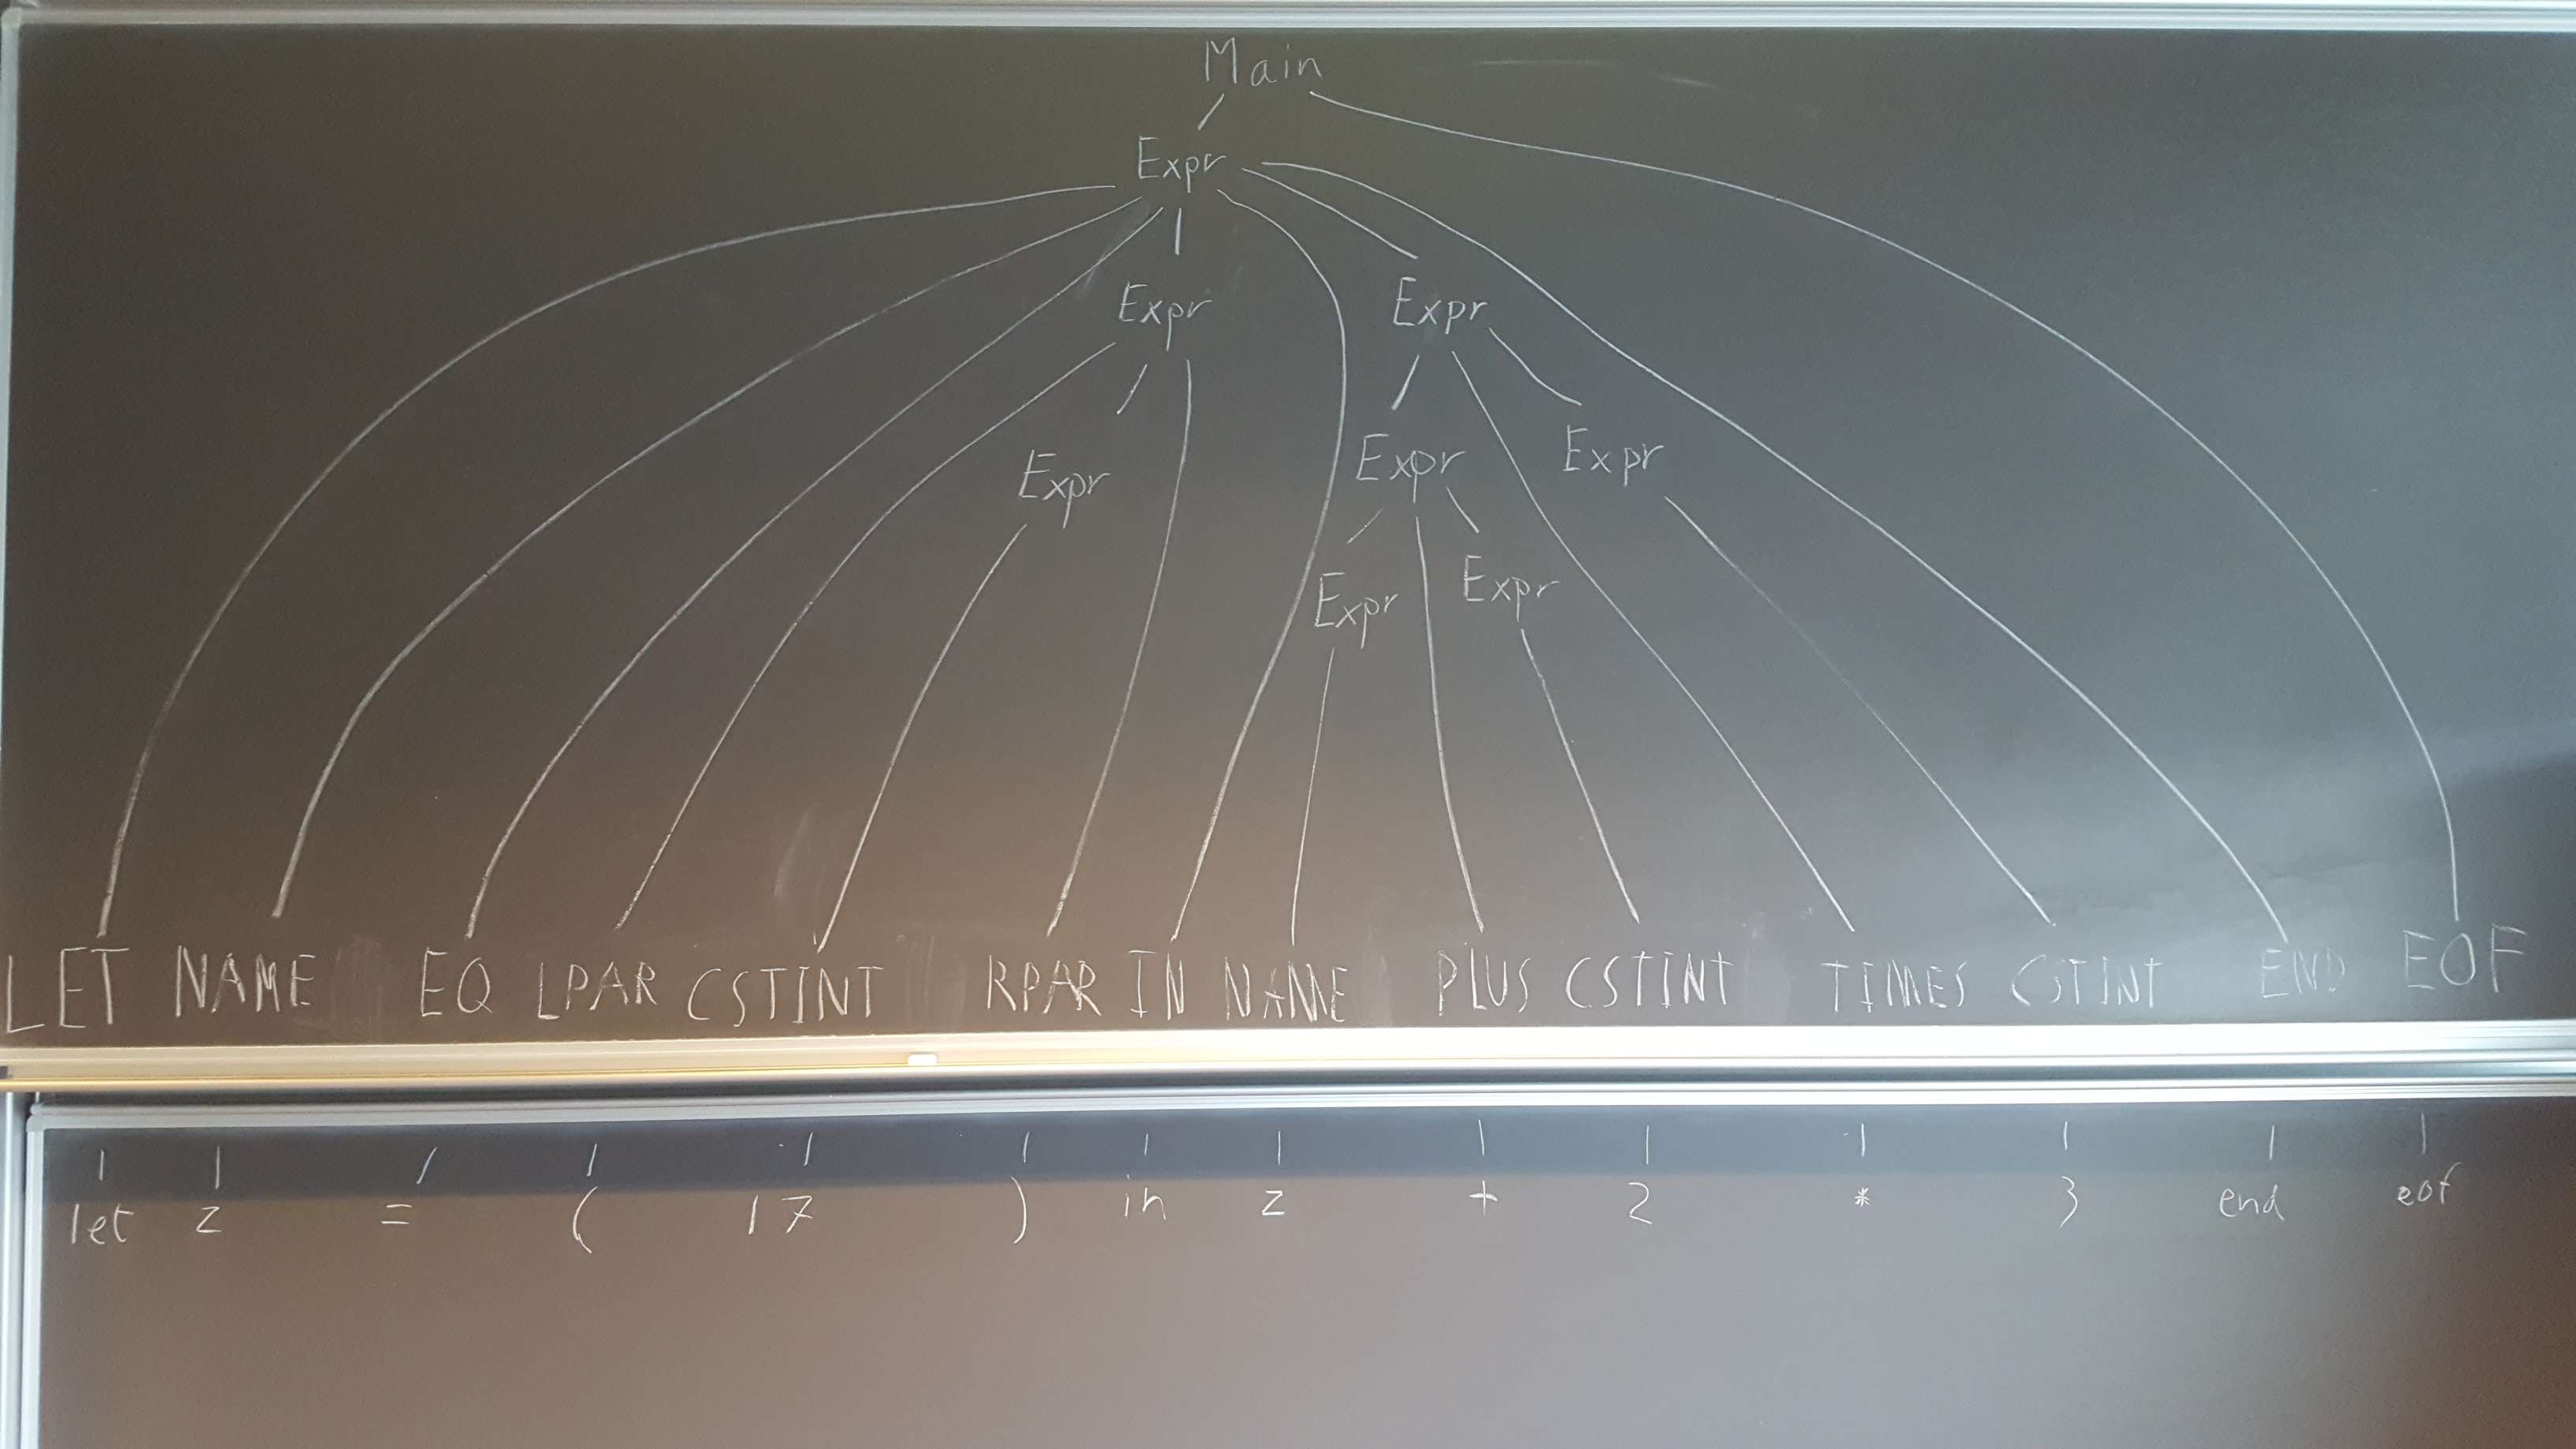 Main
Expr
Expr Expr
Expr Expr Expr
Expr Expr
LET NAME EQ LPAR CSTINT RPAR IN NAME PLUS CSTINT TIMES CSTINT END EOF
let z = ( 17 ) in z + 2 * 3 end eof